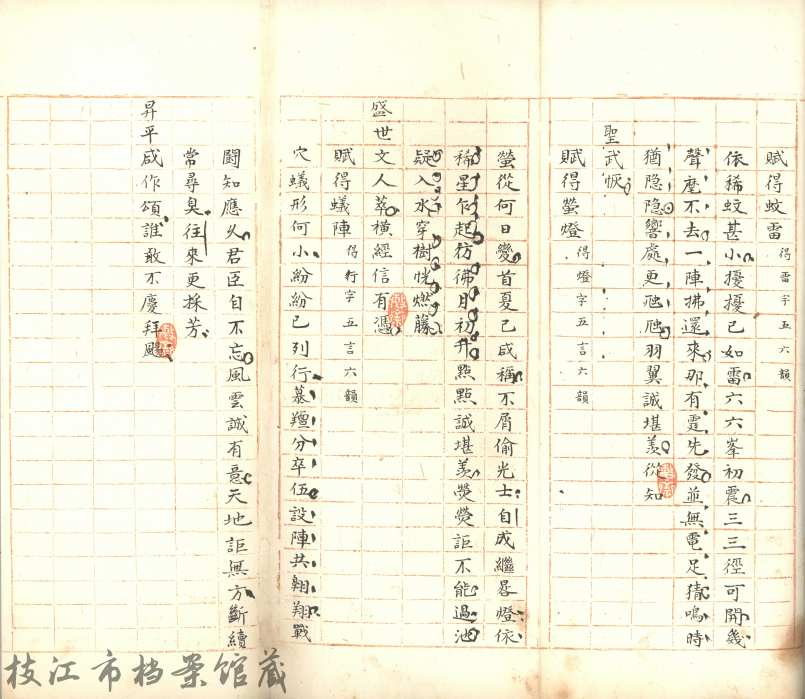 賦得蚊雷 得雷字五言六韻
依稀蚊甚小擾擾已如雷六六峯初震三三徑可開幾
聲麾不去一陣拂還來那有霆先發並無電足猜鳴時
猶隐隐響處更虺虺羽翼誠堪羨從知
聖武恢
賦得螢燈 得燈字五言六韻
螢從何日變首夏已咸稱不屑偷光士自成繼晷燈依
稀星乍起彷彿月初升點點誠堪羨熒熒詎不能過池
疑入水穿樹恍燃藤
盛世文人萃橫經信有憑
賦得蟻陣 得行字五言六韻
穴蟻形何小紛紛已列行慕羶分卒伍設陣共翱翔戰
鬪知應久君臣自不忘風雲誠有意天地詎無方斷續
常尋臭往來更採芳
昇平咸作頌誰敢不慶拜颺
枝江市档案馆藏